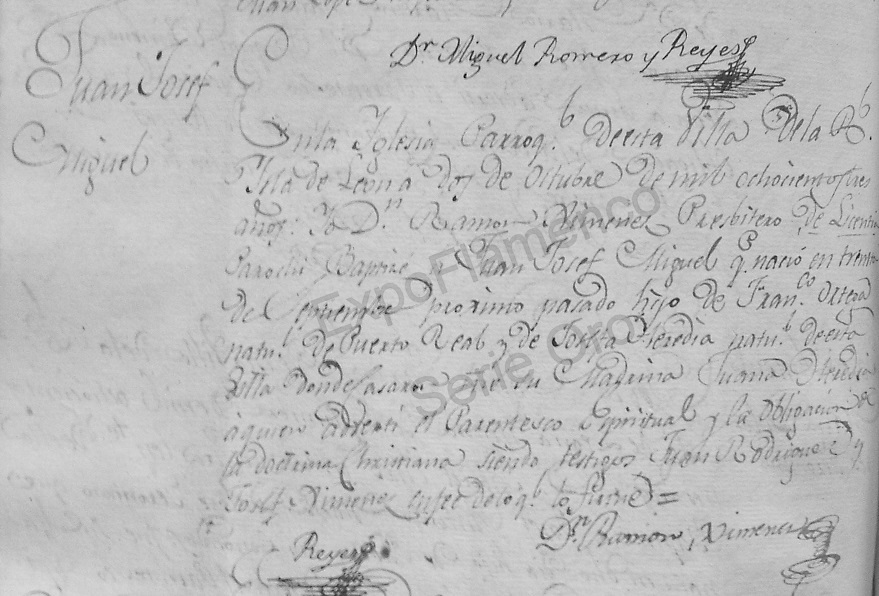 Dr. Miguel Romero y Reyes
Juan Josef
Miguel
En la Iglesia Parroql. de esta Villa de la Rl.
Isla de Leon a dos de Octubre de mil ochocientos tres
años: Yo Dn. Ramon Ximenez Presbitero de Licentia
Parochi Baptizé a Juan Josef Miguel q. nació en treinta
de Septiembre proximo pasado hijo de Franco. Ortega
natul. de Puerto Real y de Josefa Heredia natul. de esta
Villa donde casaron fue su Madrina Juana Heredia
a quien adverti el Parentesco Espiritual y la obligacion de
la doctrina Christiana siendo testigos Juan Rodriguez y
Josef Ximenez en fee de lo ql. lo firmé =
Dn. Ramon Ximenez
Reyes
ExpoFlamenco
Serie Oro